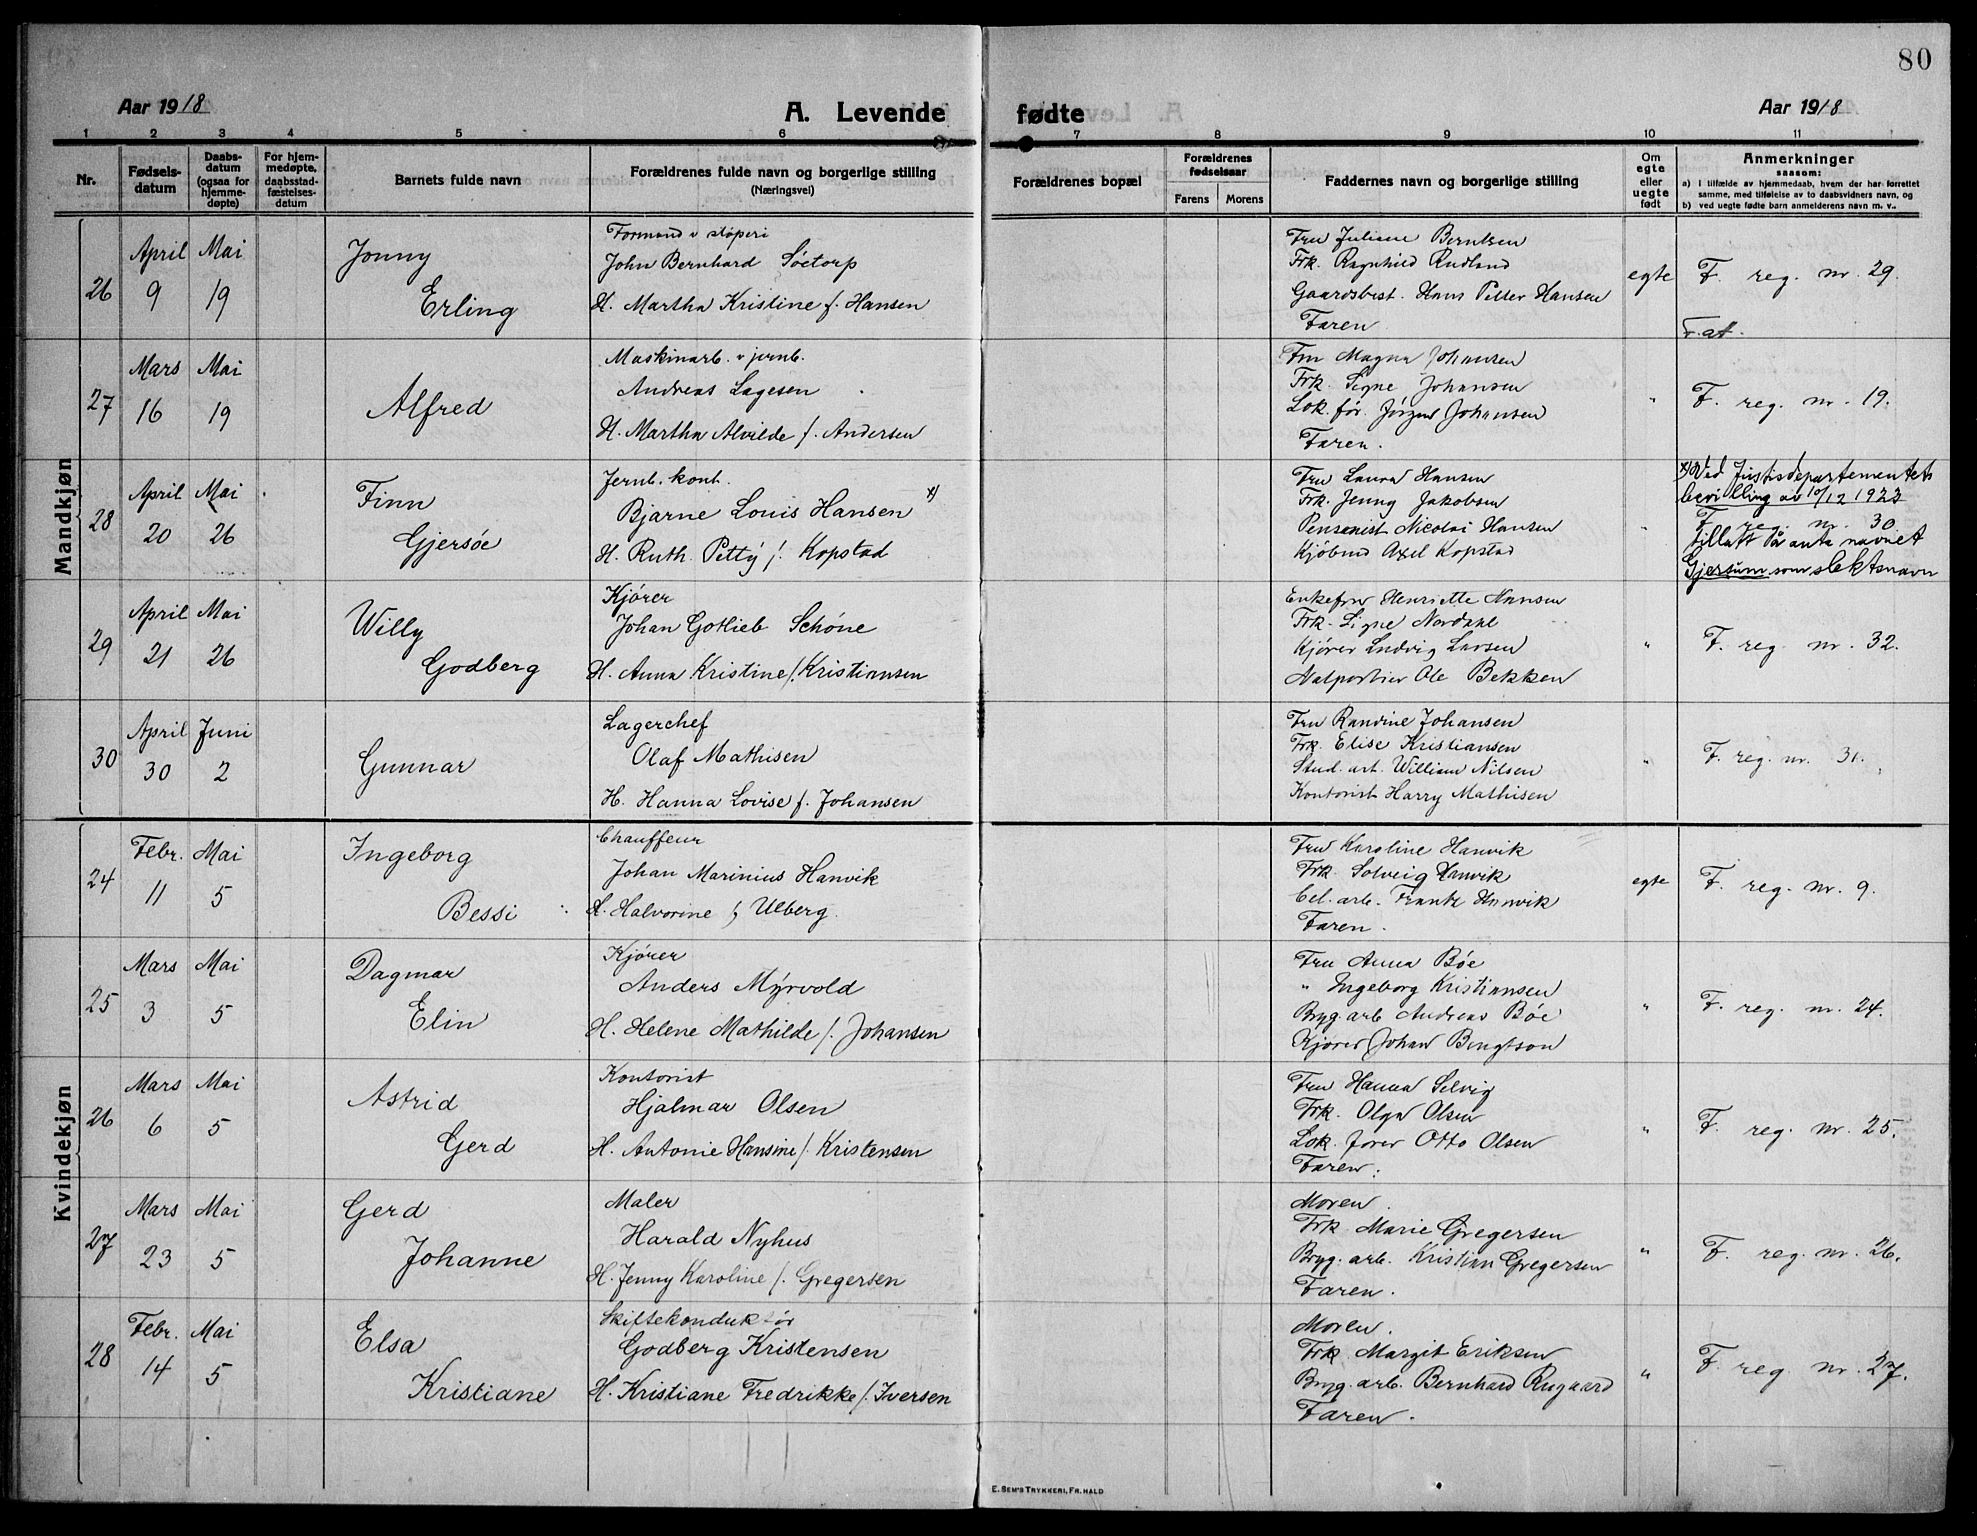 80
Aar 1918
A. Levende fødte
Aar 1918
1 2 3 4 5 6 7 8 9 10 11
Nr.
Fødsels-
datum
Daabs-
datum
(ogsaa for
hjemme-
døpte)
For hjem-
medøpte,
daabsstad-
fæstelses-
datum
Barnets fulde navn
Forældrenes fulde navn og borgerlige stilling
(Næringsvei)
Forældrenes bopæl
Forældrenes
fødselsaar
Farens
Morens
Faddernes navn og borgerlige stilling
Om
egte
eller
uegte
født
Anmerkninger
saasom:
a) I tilfælde av hjemmedaab, hvem der har forrettet
samme, med tilføielse av to daabsvidners navn, og
b) ved uegte fødte barn anmelderens navn m. v..
Mandkjøn
26
April
9
Mai
19
Jonny
Erling
Formand v støperi
John Bernhard Söetorp
H. Martha Kristine f. Hansen
Fru Juliane Berntsen
Frk. Ragnhild Rudland
Gaardsbest. Hans Petter Hansen
Faren
egte
F. reg. nr. 29.
F. at.
27
Mars
16
Mai
19
Alfred
Maskinarb. v jernb.
Andreas Lagesen
H. Martha Alvilde f. Andersen
Fru Magna Johansen
Frk. Signe Johansen
Lok. før. Jörgen Johansen
Faren.
"
F. reg. nr. 19.
28
April
20
Mai
26
Finn
Gjersöe
Jernb. kont.
Bjarne Louis Hansen x)
H. Ruth Petty f. Kopstad
Fru Laura Hansen
Frk. Jenny Jakobsen
Pensonist Nicolai Hansen
Kjøbmd Axel Kopstad
"
x) Ved Justisdepartementets
bevilling av 10/12 1923
F. reg. nr. 30
tillatt å anta navnet
Gjersum som slektsnavn
29
April
21
Mai
26
Willy
Godberg
Kjører
Johan Gotlieb Schöne
H. Anna Kristine f. Kristiansen
Enkefru Henriette Hansen
Frk. Signe Nordahl
Kjører Ludvig Larsen
Natportier Ole Bekken
"
F. reg. nr. 32.
30
April
30
Juni
2
Gunnar
Lagerchef
Olaf Mathisen
H. Hanna Lovise f. Johansen
Fru Randine Johansen
Frk. Elise Kristiansen
Stud. art. William Nilsen
Kontorist Harry Mathisen
"
F. reg. nr. 31.
Kvindekjøn
24
Febr.
11
Mai
5
Ingeborg
Bessi
Chauffeur
Johan Marinius Hanvik
H. Halvorine f. Ulberg
Fru Karoline Hanvik
Frk. Solveig Hanvik
Cel. arb. Frantz Hanvik
Faren.
egte
F. reg. nr. 9.
25
Mars
3
Mai
5
Dagmar
Elin
Kjører
Anders Myrvold
H. Helene Mathilde f. Johansen
Fru Anna Böe
" Ingeborg Kristiansen
Bryg. arb Andreas Böe
Kjører Johan Bengtson
"
F. reg. nr. 24.
26
Mars
6
Mai
5
Astrid
Gerd
Kontorist
Hjalmar Olsen
H. Antonie Hansine f. Kristensen
Fru Hanna Selvig
Frk. Olga Olsen
Lok. fører Otto Olsen
Faren.
"
F. reg. nr. 25.
27
Mars
23
Mai
5
Gerd
Johanne
Maler
Harald Nyhus
H. Jenny Karoline f. Gregersen
Moren.
Frk. Marie Gregersen
Bryg. arb. Kristian Gregersen
Faren.
"
F. reg. nr. 26.
28
Febr.
14
Mai
5
Elsa
Kristiane
Skiftekonduktör
Godberg Kristensen
H. Kristiane Fredrikke f. Iversen
Moren.
Frk. Margit Eriksen
Bryg. arb. Bernhard Rugaard
Faren.
"
F. reg. nr. 27.
E. SEM'S TRYKKERI, FR. HALD